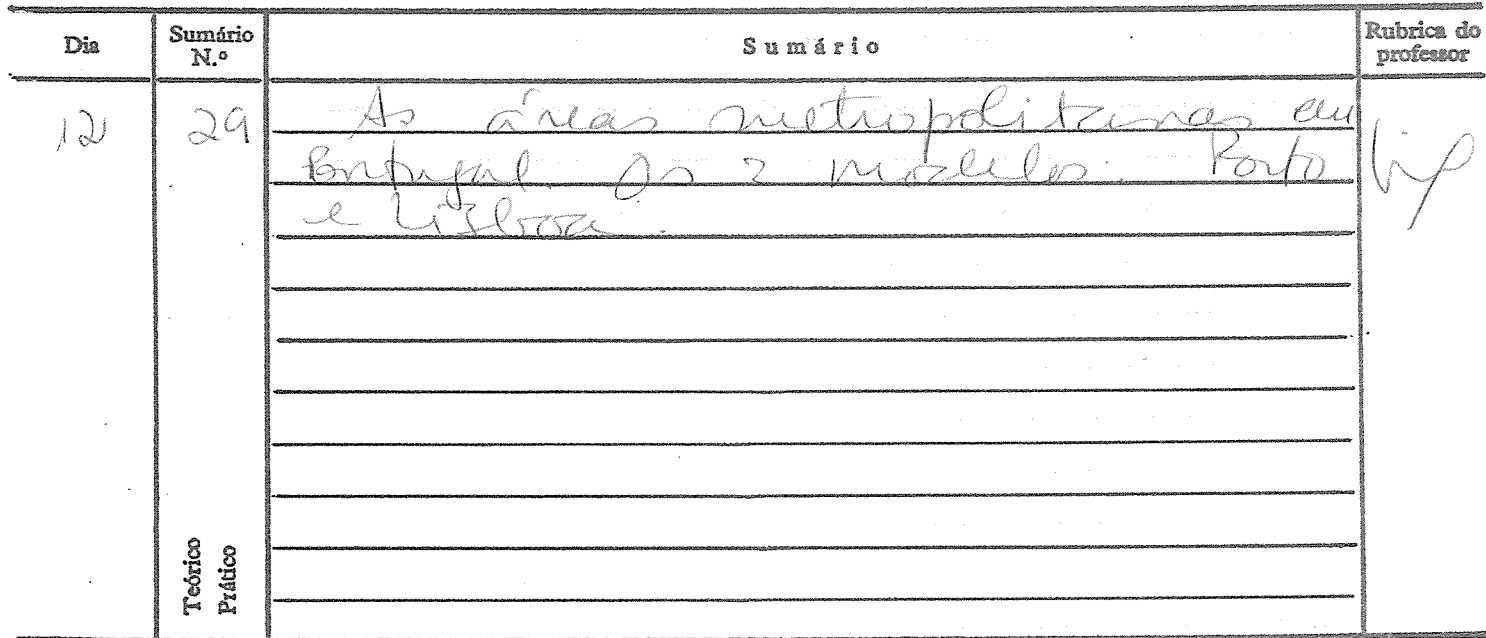 Dia Sumário N.º Sumário Rubrica do professor
12 29 As áreas metropolitanas em
Portugal. Os 2 modelos: Porto
e Lisboa.
Teórico
Prático